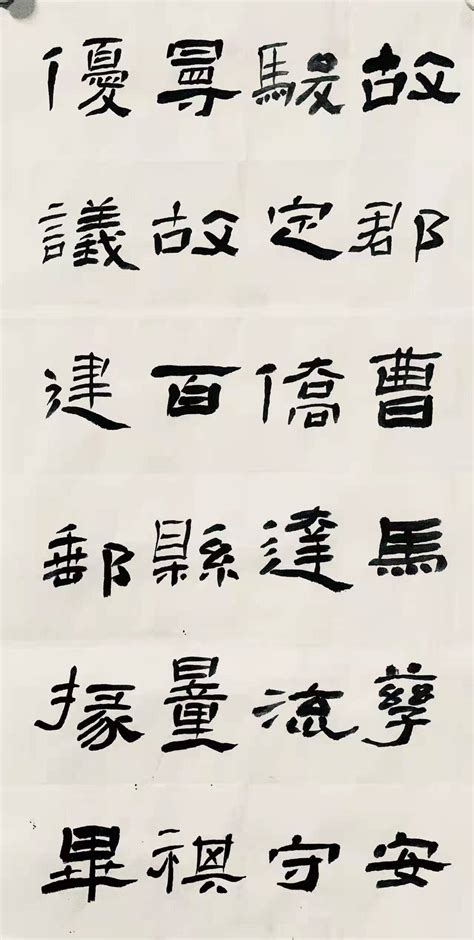 故郡曹馬安
定僑達流守
故百縣量祺
優議建郵掾畢